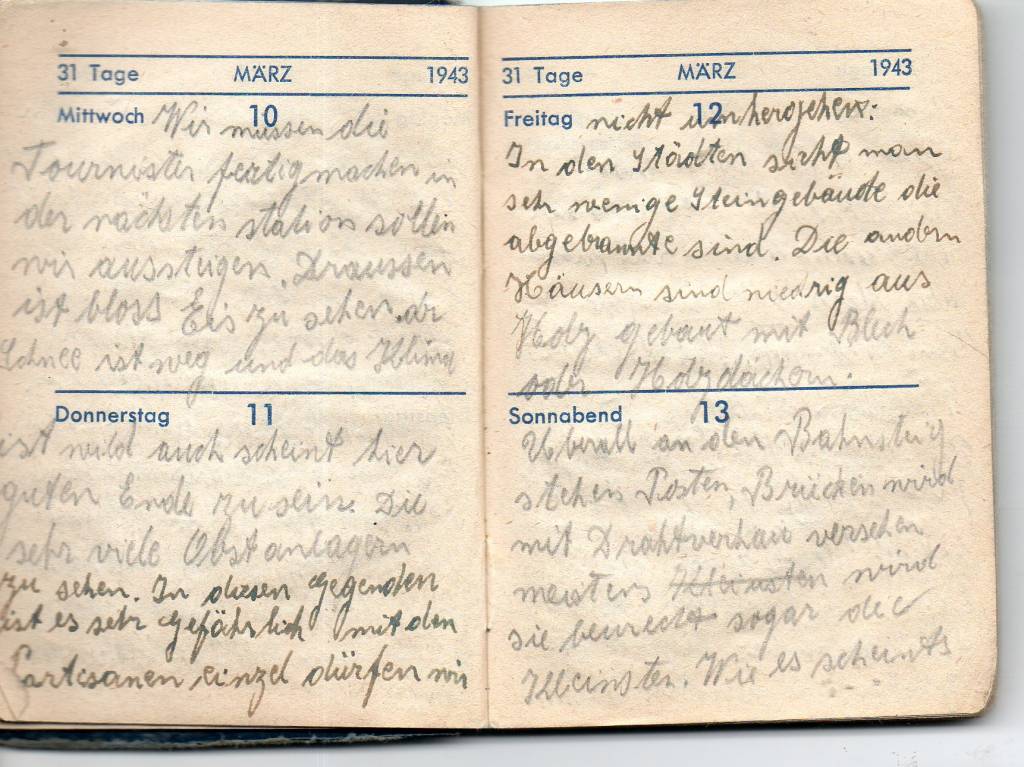 31 Tage MÄRZ 1943
Mittwoch 10 Wir müssen die
Tournister fertigmachen in
der nächsten station sollen
wir aussteigen. Draussen
ist bloss Eis zu sehen. der
Schnee ist weg und das Klima
Donnerstag 11
ist mild auch scheint hier
guten Ende zu sein. Die
sehr viele Obstanlagern
zu sehen. In diesen Gegenden
ist es sehr Gefährlich mit den
Partisanen einzel dürfen wir
31 Tage MÄRZ 1943
Freitag 12 nicht umhergehen:
In den Städten sieht man
sehr wenige Steingebäude die
abgebrannte sind. Die andern
Häusern sind niedrig aus
Holz gebaut mit Blech
oder Holzdächern.
Sonnabend 13
Uberall an den Bahnsteig
stehen Posten, Brücken wird
mit Drahtverhau versehen
meistens Kleinsten wird
sie bewacht sogar die
Kleinsten. Wie es scheint